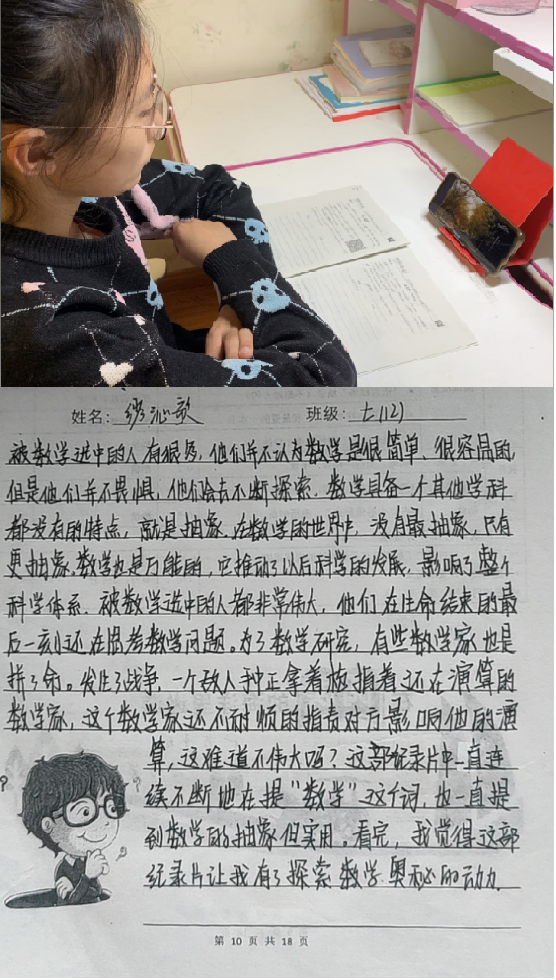 姓名：缪沁歆 班级：七(12)
被数学选中的人有很多，他们并不认为数学是很简单、很容易的，
但是他们并不畏惧，他们会去不断探索。数学具备一个其他学科
都没有的特点，就是抽象。在数学的世界中，没有最抽象，只有
更抽象。数学也是万能的，它推动了以后科学的发展，影响了整个
科学体系。被数学选中的人都非常伟大，他们在生命结束的最
后一刻还在思考数学问题。为了数学研究，有些数学家也是
拼了命。发生了战争，一个敌人手中正拿着枪指着还在演算的
数学家，这个数学家还不耐烦的指责对方影响他的演
算，这难道不伟大吗？这部纪录片中一直连
续不断地在提“数学”这个词，也一直提
到数学的抽象但实用。看完，我觉得这部
纪录片让我有了探索数学奥秘的动力。
第 10 页 共 18 页